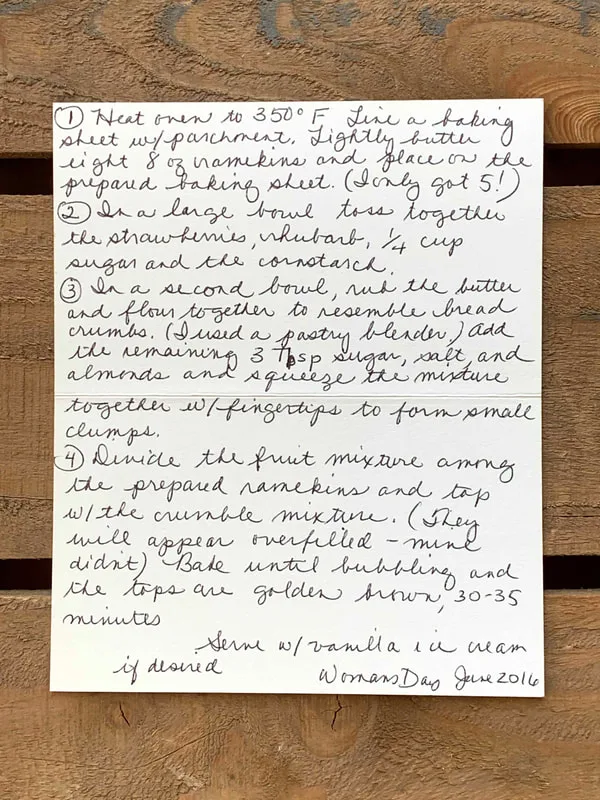 ① Heat oven to 350° F Line a baking
sheet w/parchment. Lightly butter
eight 8 oz ramekins and place on the
prepared baking sheet. (I only got 5!)
② In a large bowl toss together
the strawberries, rhubarb, ¼ cup
sugar and the cornstarch.
③ In a second bowl, rub the butter
and flour together to resemble bread
crumbs. (I used a pastry blender.) Add
the remaining 3 Tbsp sugar, salt, and
almonds and squeeze the mixture
together w/fingertips to form small
clumps.
④ Divide the fruit mixture among
the prepared ramekins and top
w/the crumble mixture. (They
will appear overfilled - mine
didn't) Bake until bubbling and
the tops are golden brown, 30-35
minutes
Serve w/vanilla ice cream
if desired
Womans Day June 2016